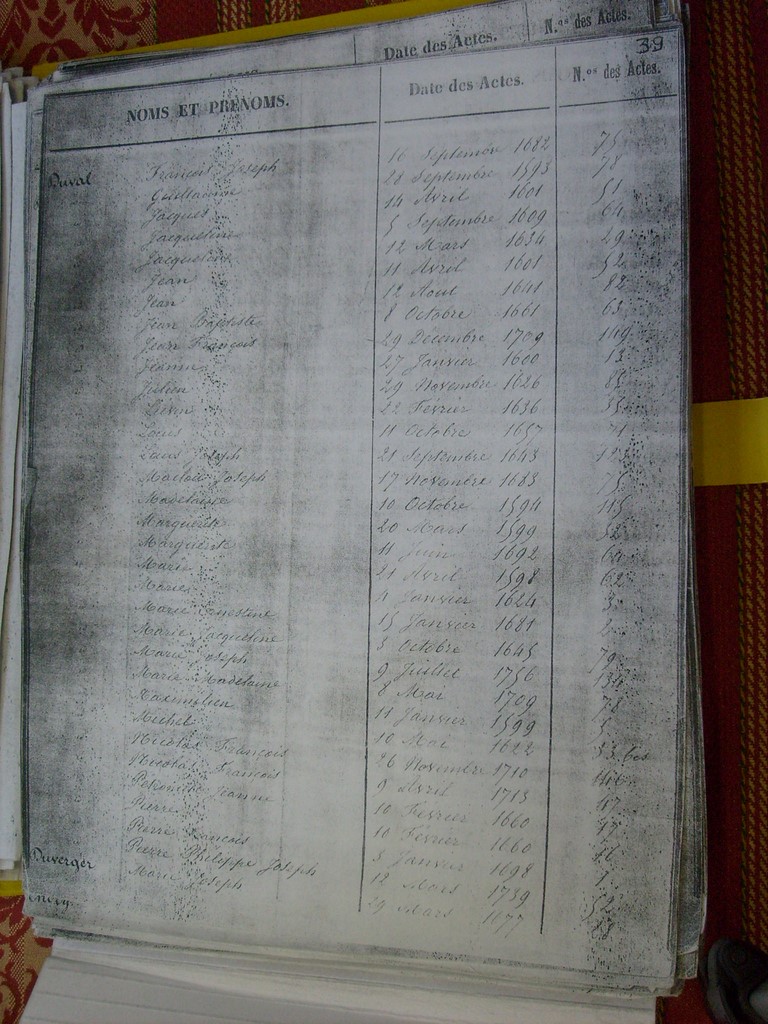 Date des Actes. N.os des Actes.
39
NOMS ET PRÉNOMS. Date des Actes. N.os des Actes.
Duval François Joseph 16 Septembre 1682 75
Guillaume 28 Septembre 1593 78
Jacques 14 Avril 1601 51
Jacqueline 5 Septembre 1609 64
Jacqueline 12 Mars 1634 29
Jean 11 Avril 1601 52
Jean 12 Aout 1641 82
Jean Baptiste 8 Octobre 1661 63
Jean François 29 Décembre 1709 149
Jeanne 27 Janvier 1600 13
Julien 29 Novembre 1626 85
Lévin 22 Février 1636 35
Louis 11 Octobre 1657 71
Louis Joseph 21 Septembre 1643 125
Joseph 17 Novembre 1683 75
Madelaine 10 Octobre 1594 115
Marguerite 20 Mars 1599 52
Marguerite 11 Juin 1692 64
Marie 21 Avril 1598 62
Marie 4 Janvier 1624 3
Marie Ernestine 15 Janvier 1681 2
Marie Jacqueline 3 Octobre 1645 79
Marie Joseph 9 Juillet 1756 134
Marie Madelaine 8 Mai 1709 78
Maximilien 11 Janvier 1599 5
Michel 10 Mai 1622 53 bis
Nicolas François 26 Novembre 1710 146
Nicolas François 9 Avril 1713 47
Petronille Jeanne 10 Février 1660 17
Pierre 10 Février 1660 16
Pierre François 3 Janvier 1698 1
Pierre Philippe Joseph 12 Mars 1739 52
Duverger Marie Joseph 29 Mars 1677 18